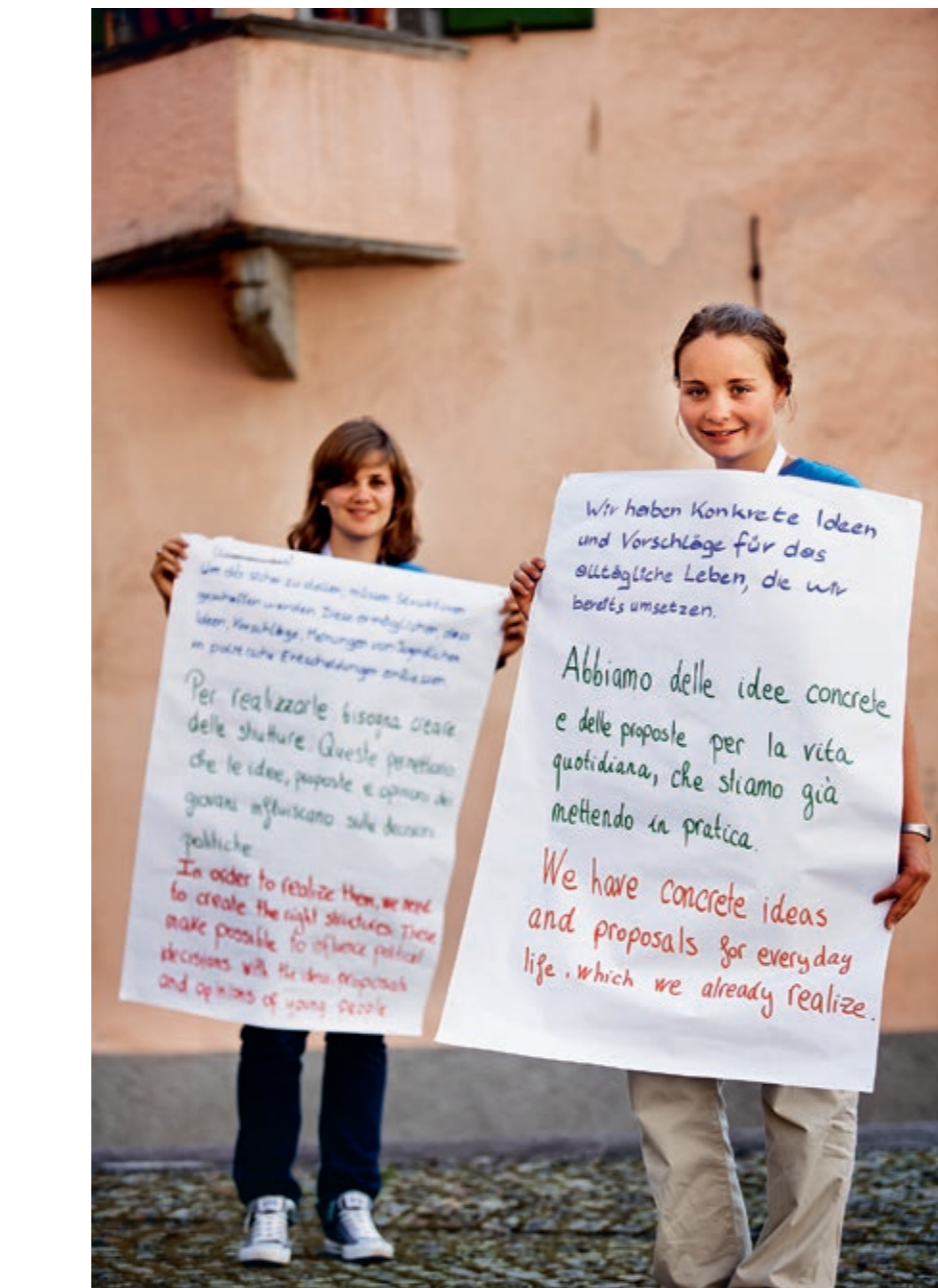 Um das sicher zu stellen, müssen Strukturen
geschaffen werden. Diese ermöglichen, dass
Ideen, Vorschläge, Meinungen von Jugendlichen
in politische Entscheidungen einfliessen
Per realizzarle bisogna creare
delle strutture. Queste permettono
che le idee, proposte e opinioni dei
giovani influiscano sulle decisioni
politiche
In order to realize them, we need
to create the right structures. These
make possible to influence political
decisions with the ideas, proposals
and opinions of young people
Wir haben Konkrete Ideen
und Vorschläge für das
alltägliche Leben, die wir
bereits umsetzen.
Abbiamo delle idee concrete
e delle proposte per la vita
quotidiana, che stiamo già
mettendo in pratica.
We have concrete ideas
and proposals for everyday
life, which we already realize.